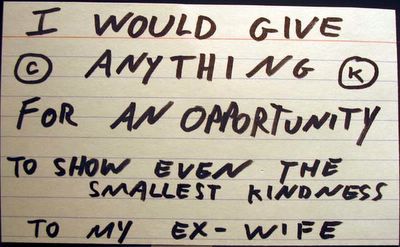 I WOULD GIVE
Ⓒ ANYTHING Ⓚ
FOR AN OPPORTUNITY
TO SHOW EVEN THE
SMALLEST KINDNESS
TO MY EX-WIFE